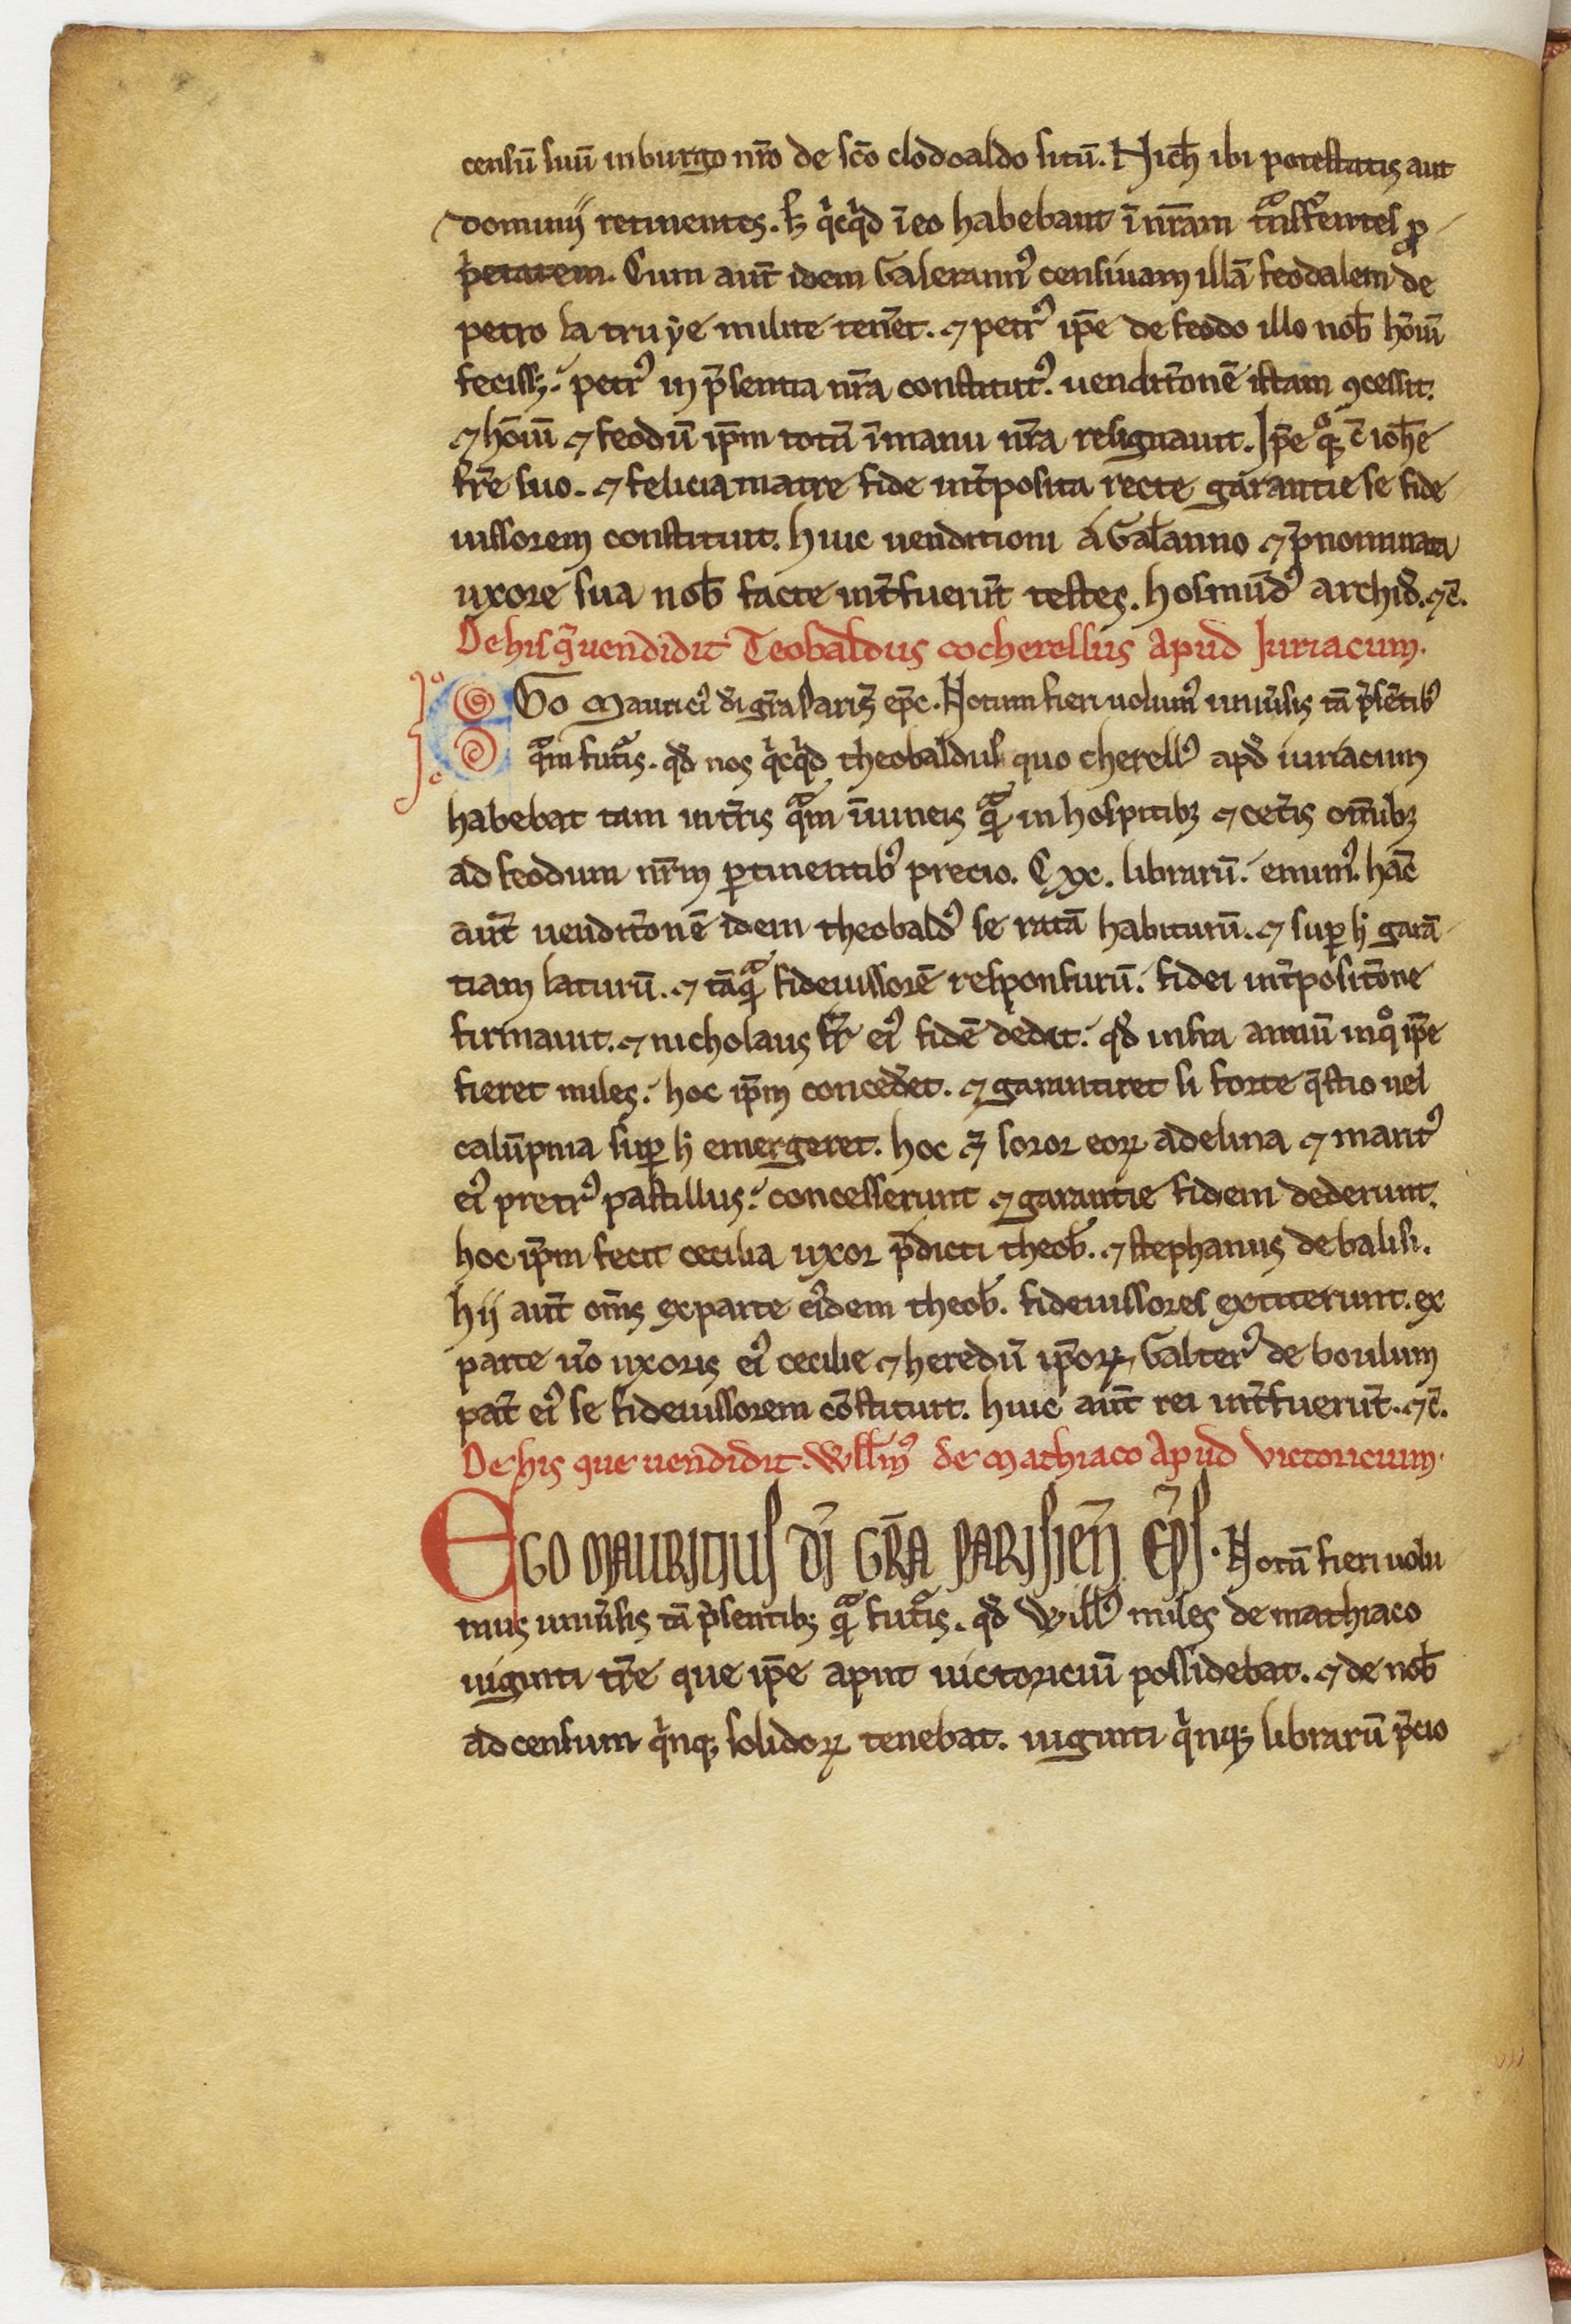 censū suū in burgo nr̄o de sc̄o clodoaldo sitū. Nich̄ ibi potestatis aut
dominij retinentes. sꝫ qͥcqͥd ī eo habebant ī nr̄am tͣnsfͬentes ꝓ
pͥetatem. Cum aut̄ idem Galerannꝰ censiuam illā feodalem de
petro la truẏe milite ten̄et. ⁊ petrꝰ ip̄e de feodo illo nob̄ hōiū
fecissꝫ. petrꝰ in p̄sentia nr̄a constitutꝰ. uendit̄onē istam ꝯcessit.
⁊ hōiū ⁊ feodū ip̄m totū ī manu nr̄a resignauit. Ip̄e qͦqꝫ c̄ ioh̄e
fr̄e suo. ⁊ felicia matre fide int̄posita recte garantie se fide
iussorem constituit. huic uenditioni á Gal̄anno ⁊ p̄nominata
uxore sua nob̄ facte int̄fuerūt testes. hosmūdꝰ archid̄. ⁊c̄.
De his q̄ uendidit Teobaldus cocherellus apud Iuriacum.
EGo Mauriciꝰ d̄i gr̄a Parisꝫ ep̄c. Notum fieri uolumꝰ uniu̾sis tā p̄sētibꝰ
qͣm futͥis. qd̄ nos qͥcqͥd theobaldus quo cherellꝰ apd̄ iuriacum
habebat tam in tr̄is qͣm ī uineis qͣꝫ in hospitibꝫ ⁊ cet̄is om̄ibꝫ
ad feodum nr̄m ꝑtinentibꝰ precio. Cxc. librarū. emimꝰ. hāc
aut̄ uendit̄onē idem theobaldꝰ se ratā habiturū. ⁊ suꝑ h̄ garā
tiam laturū. ⁊ tāqͣꝫ fideiussorē responsurū. fidei int̄posit̄one
firmauit. ⁊ nicholaus fr̄ eiꝰ fidē dedit. qd̄ infra annū in qͦ ip̄e
fieret miles. hoc ip̄m conced̄et. ⁊ garantiret si forte q̄stio uel
calūpnia suꝑ h̄ emergeret. hoc ⁊̄ soror eoꝝ adelina ⁊ maritꝰ
eiꝰ pretrꝰ pastillus. concesserunt ⁊ garantie fidem dederunt.
hoc ip̄m fecit cecilia uxor p̄dicti theob̄. ⁊ stephanus de balisi.
hij aut̄ om̄s ex parte eiꝰdem theob̄. fideiussores extiterunt. ex
parte u̾o uxoris eiꝰ cecilie ⁊ heredū ip̄oꝝ, Galterꝰ de boulum
pat̄ eiꝰ se fideiussorem cōstituit. huic aut̄ rei int̄fuerūt. ⁊c̄.
De his que uendidit. Will̄mꝰ de Mathiaco apud victoricium.
EGO MAURITIUS DĪ GRĀ PARISIEN̄ EP̄S. Notū fieri uolu
mus uniu̾sis tā p̄sentibꝫ qͣꝫ futͥis. qd̄ Willꝰ miles de mathiaco
uiginti tr̄e que ip̄e aput uictoriciū possidebat. ⁊ de nob̄
ad censum qͥnqꝫ solidoꝝ tenebat. uiginti qͥnqꝫ librarū p̄cio